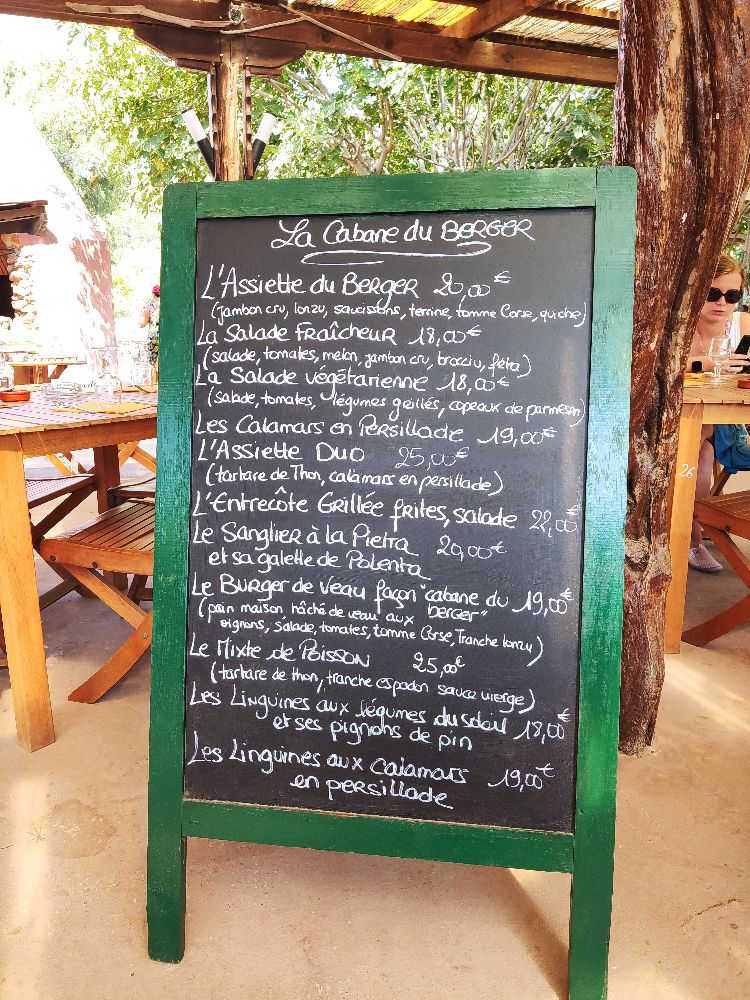 La Cabane du BERGER
L'Assiette du Berger 20,00€
(jambon cru, lonzu, saucissons, terrine, tomme Corse, quiche)
La Salade Fraîcheur 18,00€
(salade, tomates, melon, jambon cru, brocciu, feta)
La Salade végétarienne 18,00€
(salade, tomates, légumes grillés, copeaux de parmesan)
Les Calamars en Persillade 19,00€
L'Assiette Duo 25,00€
(tartare de Thon, calamars en persillade)
L'Entrecôte Grillée frites, salade 22,00€
Le Sanglier à la Pietra 20,00€
et sa galette de Polenta
Le Burger de Veau façon "cabane du 19,00€
berger"
(pain maison hâché de veau aux
oignons, salade, tomates, tomme Corse, Tranche lonzu)
Le Mixte de Poisson 25,00€
(tartare de thon, tranche espadon sauce vierge)
Les Linguines aux légumes du soleil 18,00€
et ses pignons de pin
Les Linguines aux calamars 19,00€
en persillade
26